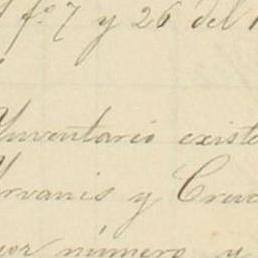 fº 7 y 26 del
Inventario existe
y Creva
por número y